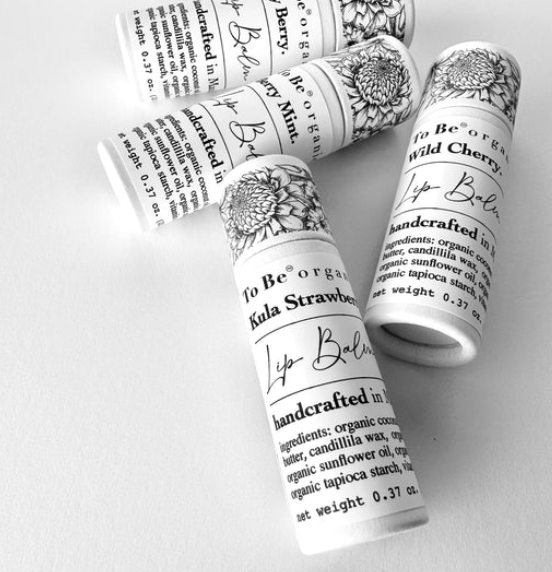 y Berry.
Lip Balm
handcrafted in Ma
organic coco
butter, candillila wax,
organic sunflower oil, org
organic tapioca starch, vita
net weight 0.37 oz.
To Be® organ
rry Mint.
Lip Balm
handcrafted in
ingredients: organic coconu
butter, candillila wax, organ
organic sunflower oil, organ
organic tapioca starch, vitam
net weight 0.37 oz.
To Be® orga
Wild Cherry.
Lip Balm
handcrafted in M
ingredients: organic coco
butter, candillila wax, o
organic sunflower oil,
organic tapioca starch,
net weight 0.37 oz
To Be® organ
Kula Strawber
Lip Balm
handcrafted in M
ingredients: organic cocon
butter, candillila wax, orga
organic sunflower oil, organ
organic tapioca starch, vitam
net weight 0.37 oz.